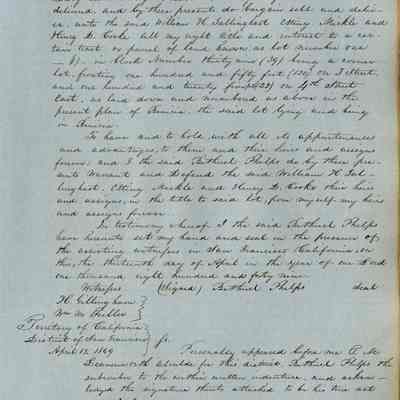 delivered, and by these presents do bargain sell and deliv-
er, unto the said William H. Tillinghast Etting Mickle and
Henry D. Cooke all my right title and interest to a cer-
tain tract or parcel of land known as lot number one
—1).— in block number thirty nine (39) being a corner
lot, fronting one hundred and fifty feet (150) on I Street
and one hundred and twenty five feet on 4th Street
East, as laid down and numbered as above in the
present plan of Benicia. the said lot lying and being
in Benicia.
To have and to hold with all its appurtenances
and advantages, to them and their heirs and assigns
forever and I the said Bethuel Phelps do by these pre-
sents warrant and defend the said William H. Til-
linghast. Etting Mickle and Henry D. Cooke their heirs
and assigns, in the title to said lot, from myself my heirs
and assigns forever
In testimony whereof I the said Bethuel Phelps
have hereunto set my hand and seal in the presence of
the assisting witnesses in San Francisco California on
this, the thirteenth day of April in the year of our Lord
one thousand eight hundred and forty nine
Witnesses (Signed) Bethuel Phelps seal
H. Gillingham }
Wm M Sheller }
Territory of California }
District of San Francisco } Ss.
April 13. 1849 Personally appeared before me
Alcalde for this district, Bethuel Phelps the
subscriber to the within written indenture, and acknow-
ledged the signature thereto attached to be his true act